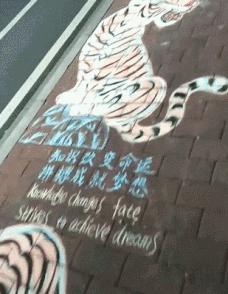 知识改变命运
拼搏成就梦想
Knowledge changes face
serves to achieve dreams